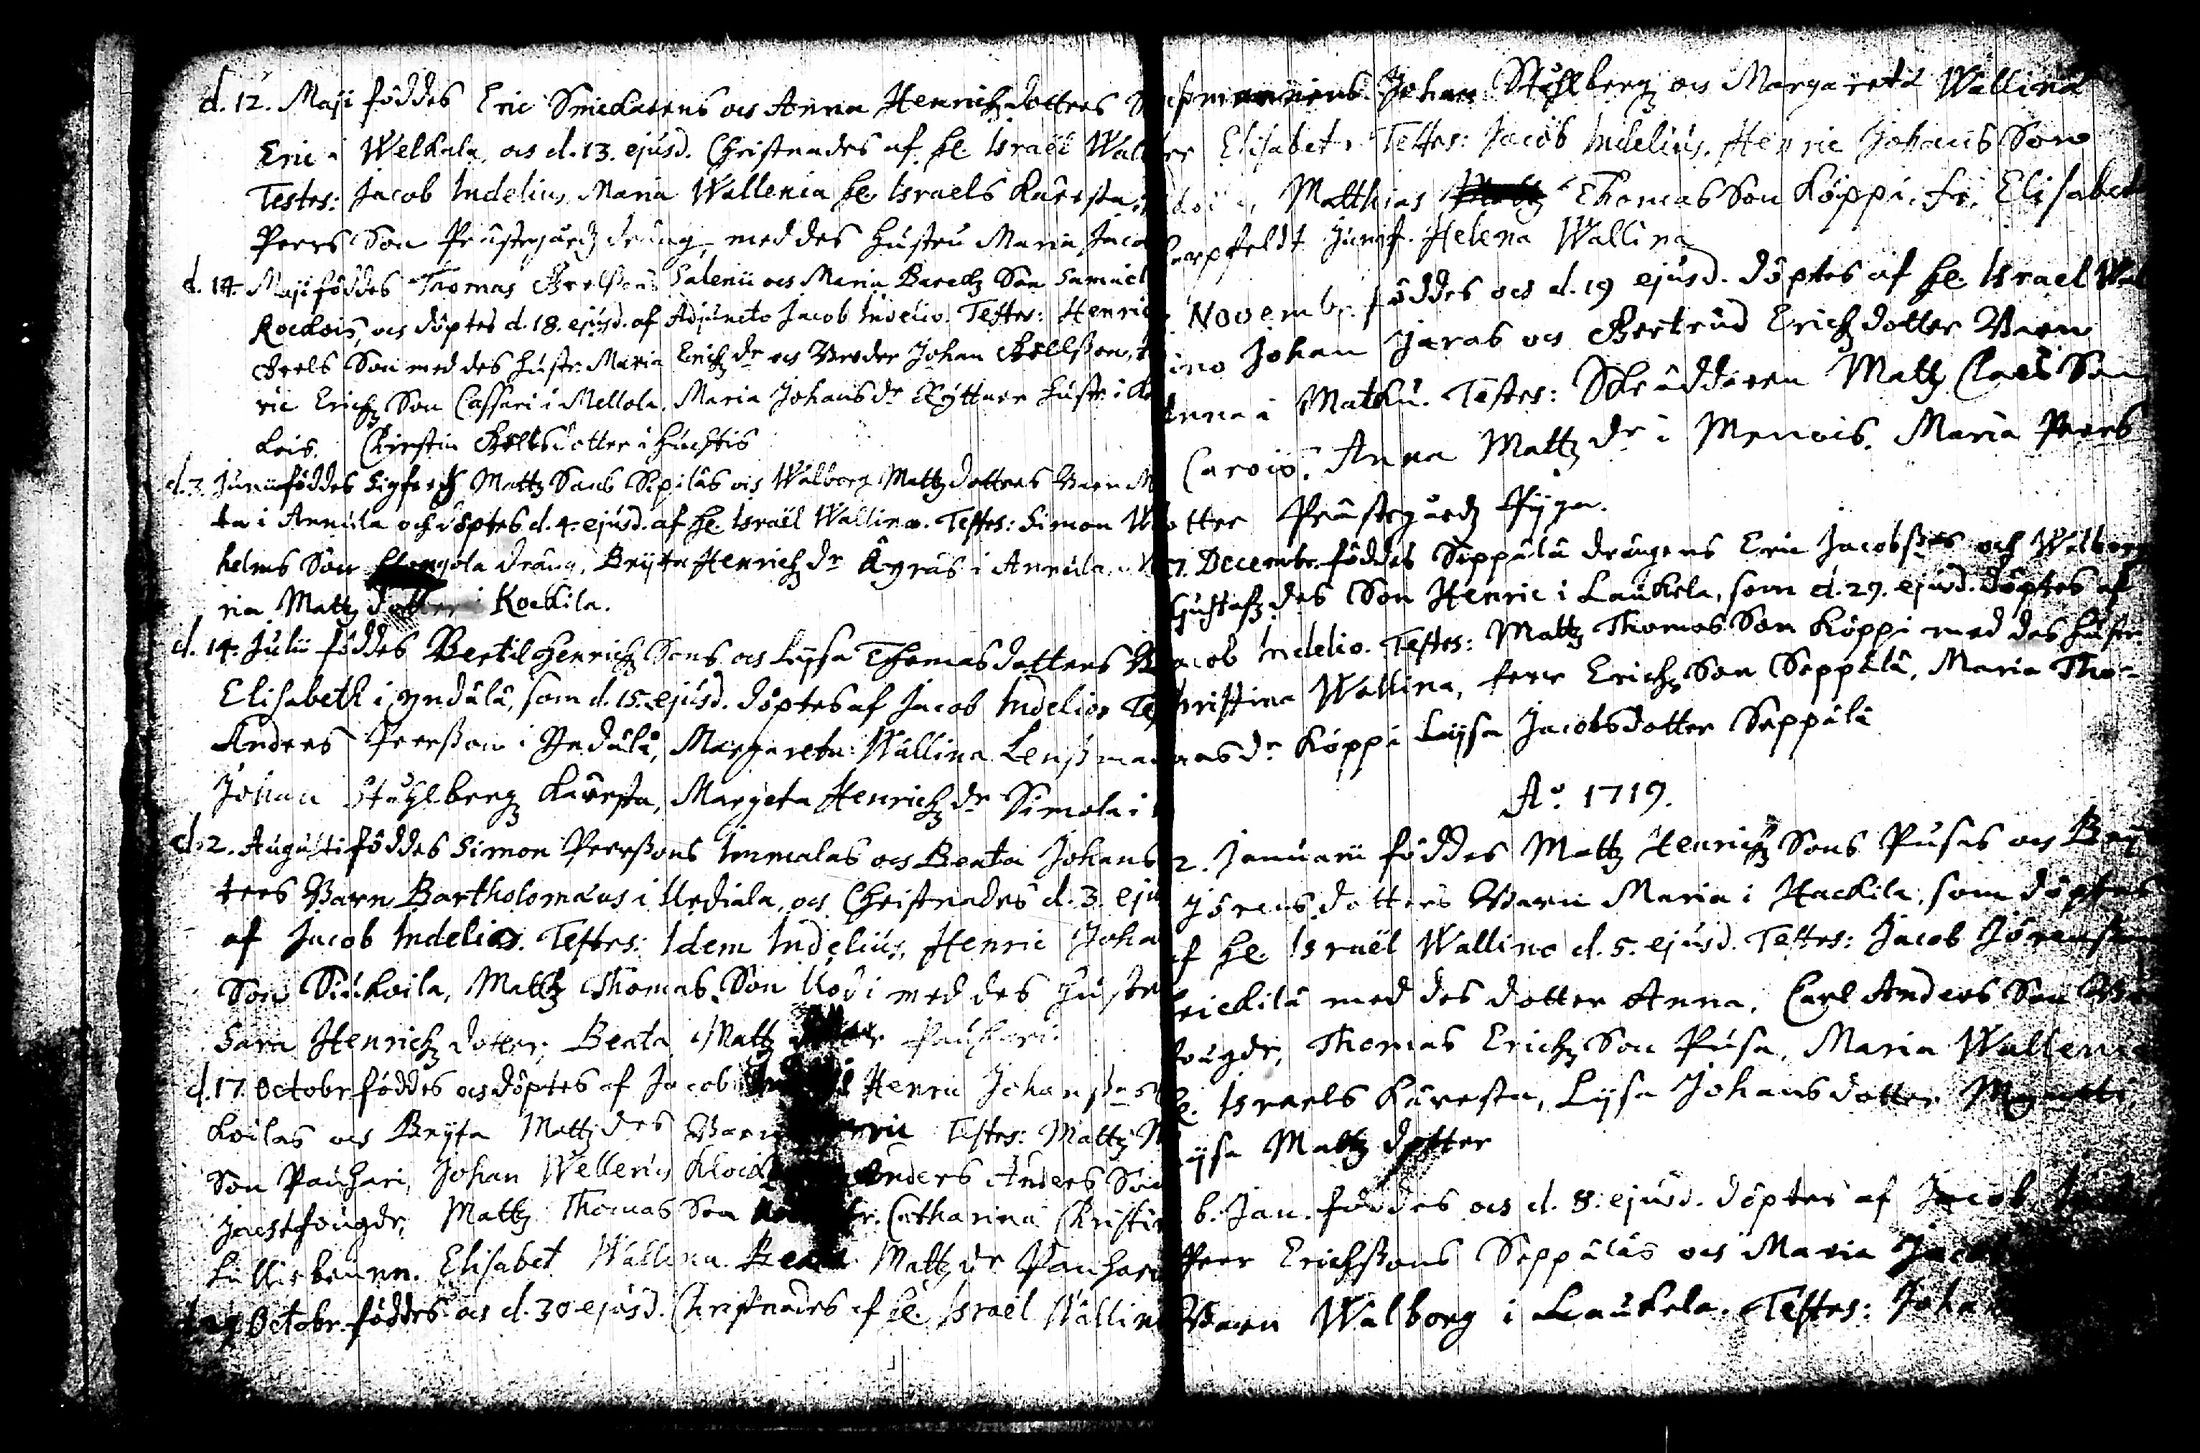 d. 12. Maji föddes Eric Smickarens och Anna Henrichz dotters
Eric i Welkala, och d. 13. ejusd. Christnades af He. Israël Wal
Testes: Jacob Indelius, Maria Wallenia He Israels Käresta,
Peers Son Prästegårdz dräng, med des hustru Maria Jaco
d. 14. Maji föddes Thomas Salenii och Maria Son Samuel
Kockois, och döptes d. 18. ejusd. af Adjuncto Jacob Indelio. Testes: Henric
Son med des hustr: Maria Erichz dr och Broder Johan
ric Erichz Son Cassari i Mellola, Maria Johans dr Ryttare hustr: i Ko
kois. Kirstin dotter i Huchtis
d. 3. Junii föddes Sigfredh Mattz Sons Sipiläs och Walborg Mattz dotters Barn M
ta i Annula och döptes d. 4. ejusd. af He. Israël Wallino. Testes: Simon W
helms Son dräng, Bryta Henrichz dr Kyräs i Annula, M
ria Mattz dotter i Kockila.
d. 14. Julii föddes Bertil Henrichz Sons och Lysa Thomas dotters B
Elisabeth i Yndälä, som d. 15. ejusd. döptes af Jacob Indelio Tes
Anders Peersson i Yndälä, Margareta Wallina Lensman
Johan Ståhlberg Käresta, Margeta Henrichz dr Simola i
d. 2. Augusti föddes Simon Peerssons Immalas och Beata Johans
ters Barn Bartholomæus i Urdiala, och Christnades d. 3. ejus
af Jacob Indelio. Testes: Idem Indelius, Henric Joha
Son Siukoila, Mattz Thomas Son med des Hustr
Sara Henrichz dotter, Beata Mattz dotter Pauhari.
d. 17. Octobr. föddes och döptes af Jacob Henric Johansson
koilas och Bryta Mattz des Barn Testes: Mattz M
Son Pauhari, Johan Wellerius Klock Anders Anders Son
fougde, Mattz Thomas Son fr. Catharina Christi
Elisabet Wallina Beata Mattz dr Pauhari
Octobr. föddes och d. 30 ejusd. Christnades af He Israël Wallino
Johan Ståhlberg och Margareta Wallina
Elisabet. Testes: Jacob Indelius, Henric Johans Son
Matthias Thomas Son Köppi, fr. Elisabet
Jungf. Helena Wallina
Novembr. föddes och d. 19 ejusd. döptes af He. Israel Wal
ino Johan Jaras och Gertrud Erichz dotter Barn
Anna i Matku. Testes: Skräddaren Mattz Claes Son
Anna Mattz dr i Menois. Maria Peers
otter Prästegårdz Pyga.
7. Decembr. föddes Seppälä drängens Eric Jacobssons och Walborg
Gustafz des Son Henric i Laukela, som d. 29. ejusd. döptes af
acob Indelio. Testes: Mattz Thomas Son Köppi med des Hustr.
hristina Wallina, Peer Erichz Son Seppälä, Maria Tho-
mas dr Köppi Lysa Jacobsdotter Seppälä
Ao. 1719.
2. Januarii föddes Mattz Henrichz Sons Pusas och Bry
Jörens dotters Barn Maria i Hackila, som döptes
af He. Israël Wallino d. 5. ejusd. Testes: Jacob Jörensson
med des dotter Anna, Carl Anders Son
fougde, Thomas Erichz Son Pusa, Maria Wallenia
He. Israels Käresta, Lysa Johans dotter
Lysa Mattz dotter
6. Jan. föddes och d. 8. ejusd. döptes af Jacob
Peer Erichssons Seppäläs och Maria Jaco
Barn Walborg i Laukela. Testes: Joha